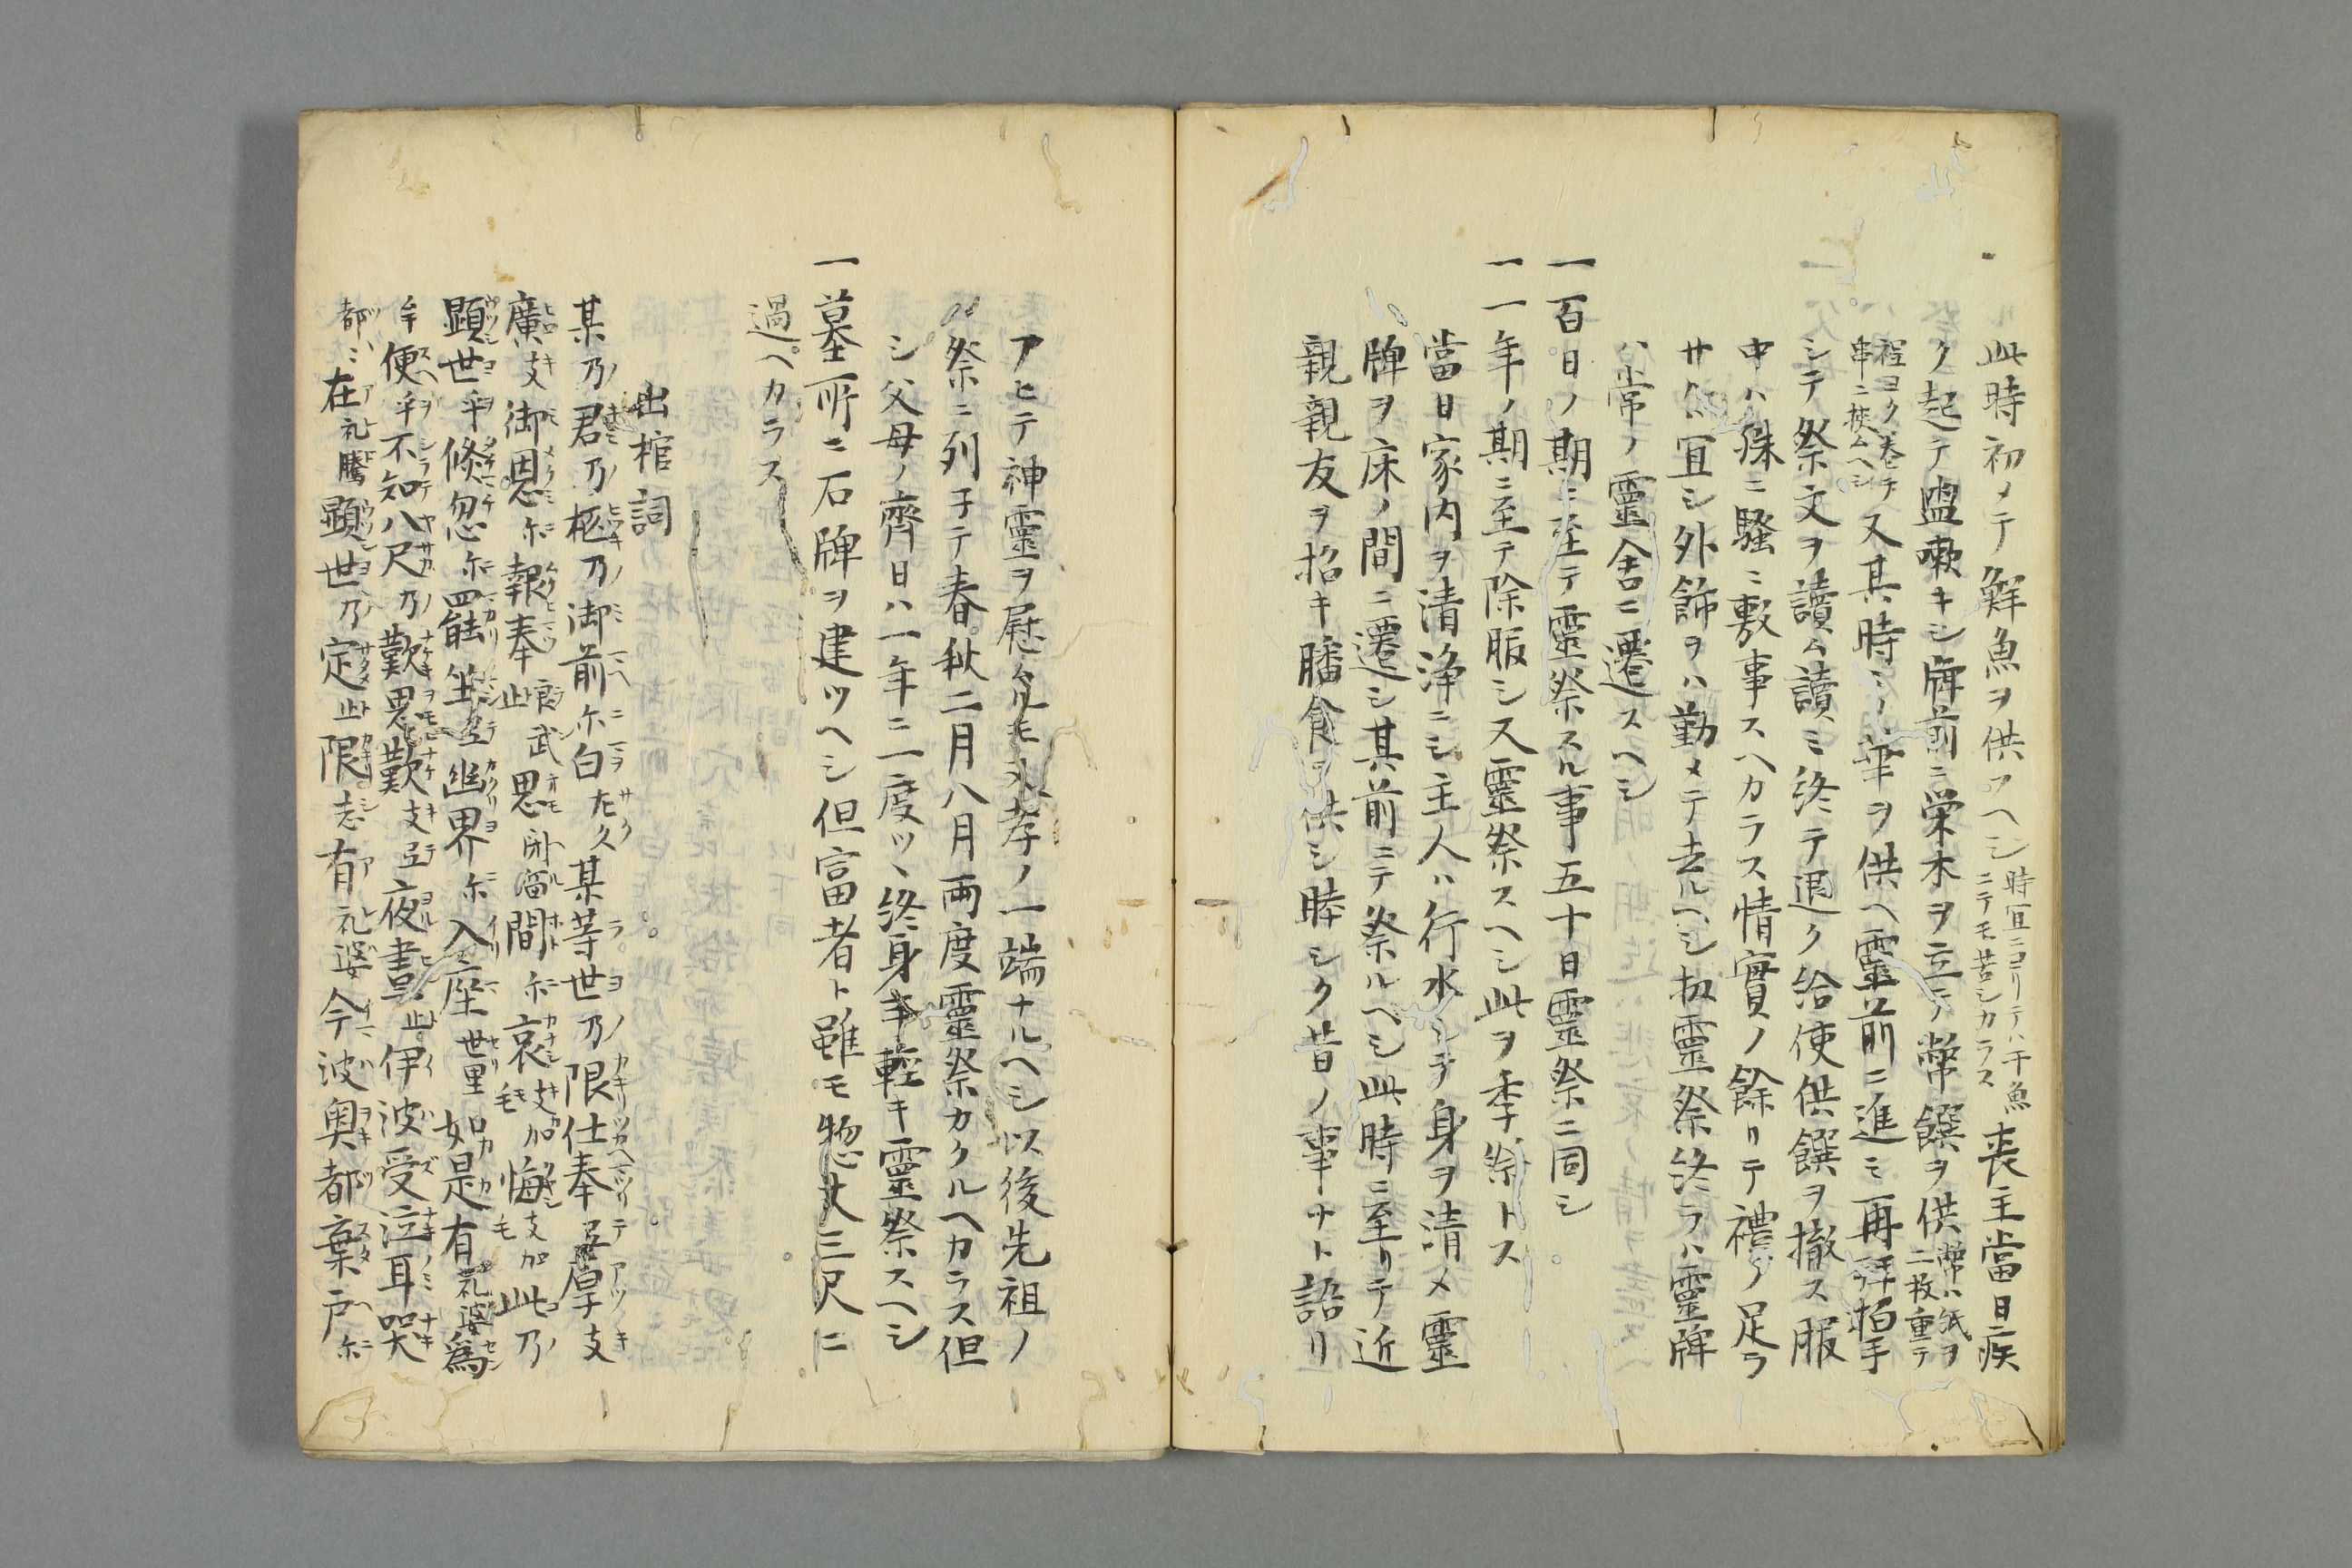 此時初メテ鮮魚ヲ供フヘシ時宜ニヨリテハ干魚ニテモ苦シカラス喪主當日疾
ク起テ盥嗽キシ牌前ニ栄木ヲ立テ幣饌ヲ供幣ハ紙ヲ二枚重テ
程ヨク巻キテ串ニ挾ムヘシ又其時ミノ華ヲ供ヘ靈前ニ進ミ再拜拍手
シテ祭文ヲ讀ム讀ミ終テ退ク給使供饌ヲ撤ス服
中ハ殊ニ騷ニ敷事スヘカラス情實ノ餘リテ禮ノ足ラ
サル宜シ外飾ヲハ勤メテ去ルヘシ扨靈祭終ラハ靈牌
ハ常ノ靈舎ニ遷スヘシ
一百日ノ期ニ至テ靈祭スル事五十日靈祭ニ同シ
一一年ノ期ニ至テ除服シ又靈祭スヘシ此ヲ季祭トス
當日家内ヲ清淨ニシ主人ハ行水シテ身ヲ清メ靈
牌ヲ床ノ間ニ遷シ其前ニテ祭ルヘシ此時ニ至リテ近
親親友ヲ招キ膰食ヲ供シ睦シク昔ノ事ナト語リ
アヒテ神靈ヲ慰ルモ孝ノ一端ナルヘシ以後先祖ノ
祭ニ列子テ春秋二月八月兩度靈祭カクルヘカラス但
シ父母ノ齊日ハ一年ニ二度ツヽ終身輕キ靈祭スヘシ
一墓所ニ石牌ヲ建ツヘシ但富者ト雖モ惣丈三尺ニ
過ヘカラス
出棺詞
某乃君乃柩乃御前尓白左久某等世乃限仕奉弖厚支
廣支御恩尓報奉止良武思閇留間尓哀支加毛悔支加毛此乃
顯世乎倏忽尓罷坐弖幽界尓入座世里如是有礼婆爲
牟便乎不知八尺乃歎思比歎支弖夜晝止伊波受泣耳哭
都ミ在礼騰顯世乃定止限志有礼婆今波奥都棄戸尓